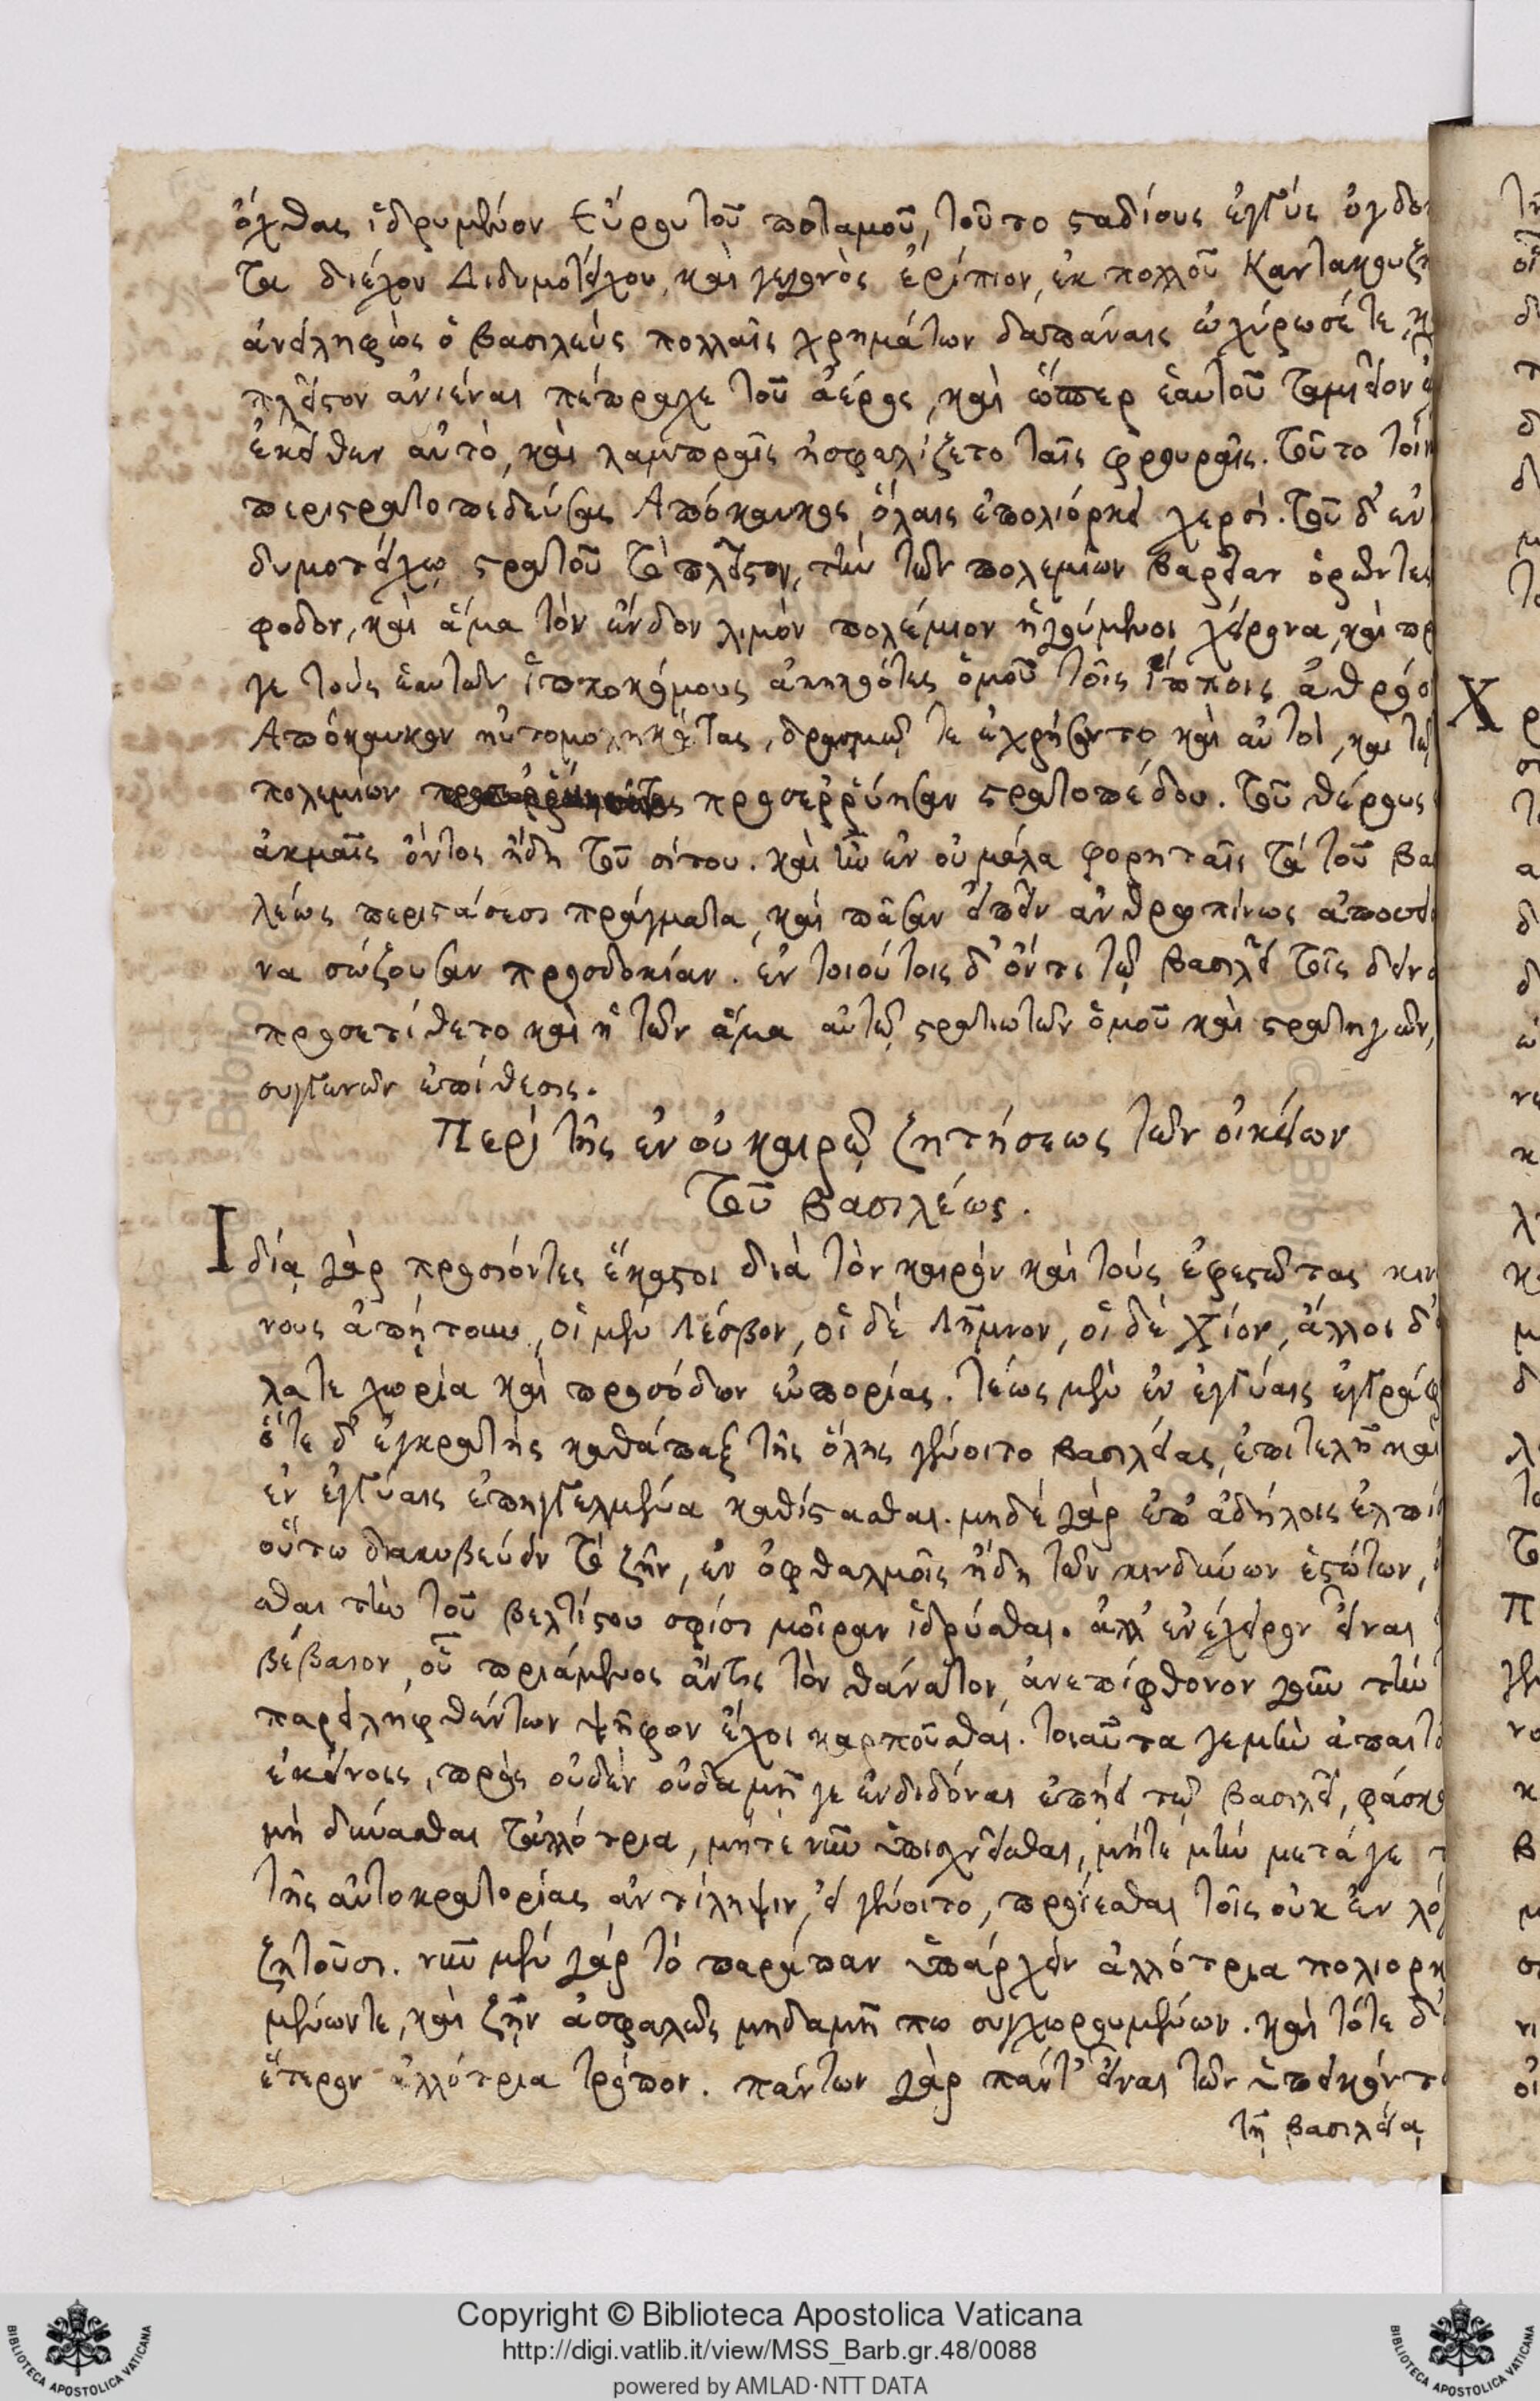 ὄχθας ἱδρυμένον Εὔρου τοῦ ποταμοῦ, τοῦτο σταδίους ἐγγὺς ὀγδο
τα διέχον Διδυμοτείχου, καὶ γεγονὸς ἐρίπιον, ἐκ πολλοῦ Καντακουζη
ἀνειληφὼς ὁ βασιλεὺς πολλαῖς χρημάτων δαπάναις ὠχύρωσέ τε,
πλεῖστον ἀνιέναι πέπραχε τοῦ ἀέρος, καὶ ὥσπερ ἑαυτοῦ ταμιεῖον
ἐκεῖθεν αὐτὸ, καὶ λαμπραῖς ἠσφαλίζετο ταῖς φρουραῖς. τοῦτο τοί
περιστρατοπεδεύσας Ἀπόκαυκος ὅλαις ἐπολιόρκει χερσί. τοῦ δ' ἐν
δυμοτείχῳ στρατοῦ τὸ πλεῖστον, τὴν τῶν πολεμίων βαρεῖαν ὁρῶντες
φοδον, καὶ ἅμα τὸν ἔνδον λιμὸν πολέμιον ἡγούμενοι χείρονα, καὶ πρ
γε τοὺς ἑαυτῶν ἱπποκόμους ἀκηκοότες ὁμοῦ τοῖς ἵπποις ἀθρόο
Ἀπόκαυκον ηὐτομοληκότας, δρασμῷ τε ἐχρήσαντο καὶ αὐτοὶ, καὶ τῷ
πολεμίων προσερρύησαν στρατοπέδου. τοῦ θέρους
ἀκμαῖς ὄντος ἤδη τοῦ σίτου. καὶ ἦν ἐν οὐ μάλα φορηταῖς τὰ τοῦ βα
λέως περιστάσεσι πράγματα, καὶ πᾶσαν εἰπεῖν ἀνθρωπίνως
να σώζουσαν προσδοκίαν. ἐν τοιούτοις δ' ὄντι τῷ βασιλεῖ τοῖς δεινο
προσετίθετο καὶ ἡ τῶν ἅμα αὐτῷ στρατιωτῶν ὁμοῦ καὶ στρατηγῶν,
συγγενῶν ἐπίθεσις.
Περὶ τῆς ἐν οὐ καιρῷ ζητήσεως τῶν οἰκείων
τοῦ βασιλέως.
Ἰδίᾳ γὰρ προσιόντες ἕκαστοι διὰ τὸν καιρὸν καὶ τοὺς ἐφεστῶτας κιν
νους ἀπῄτουν, οἱ μὲν Λέσβον, οἱ δὲ Λῆμνον, οἱ δὲ Χίον, ἄλλοι δ'
λα τε χωρία καὶ προσόδων εὐπορίας. τέως μὲν ἐν ἐγγύαις ἐγγράφ
ὅτε δ' ἐγκρατὴς καθάπαξ τῆς ὅλης γένοιτο βασιλείας, ἐπιτελῆ καὶ
ἐν ἐγγύαις ἐπηγγελμένα καθίστασθαι. μηδὲ γὰρ ἐπ' ἀδήλοις ἐλπί
οὕτω διακυβεύειν τὸ ζῆν, ἐν ὀφθαλμοῖς ἤδη τῶν κινδύνων ἑστώτων,
σθαι τὴν τοῦ βελτίστου σφίσι μοῖραν ἱδρύσθαι. ἀλλ' ἐνέχειρον εἶναι
βέβαιον, οὗ πριάμενος ἄν τις τὸν θάνατον, ἀνεπίφθονον γοῦν τὴν
παρειληφθέντων ψῆφον ἔχοι καρποῦσθαι. τοιαῦτα γε μὴν ἀπαιτο
ἐκείνοις, πρὸς οὐδὲν οὐδαμῆ γε ἐνδιδόναι ἐπῄει τῷ βασιλεῖ, φάσκο
μὴ δύνασθαι τἀλλότρια, μήτε νῦν ὑπισχνεῖσθαι, μήτε μὴν μετά γε τ
τῆς αὐτοκρατορίας ἀντίληψιν, εἰ γένοιτο, προΐεσθαι τοῖς οὐκ ἐν λό
ζητοῦσι. νῦν μὲν γὰρ τὸ παράπαν ὑπάρχειν ἀλλότρια πολιορκ
μένων τε, καὶ ζῆν ἀσφαλῶς μηδαμῆ πω συγχωρουμένων. καὶ τότε δ'
ἕτερον ἀλλότρια τρόπον. πάντων γὰρ πάντ' εἶναι τῶν ὑποκειμένων
τῇ βασιλείᾳ